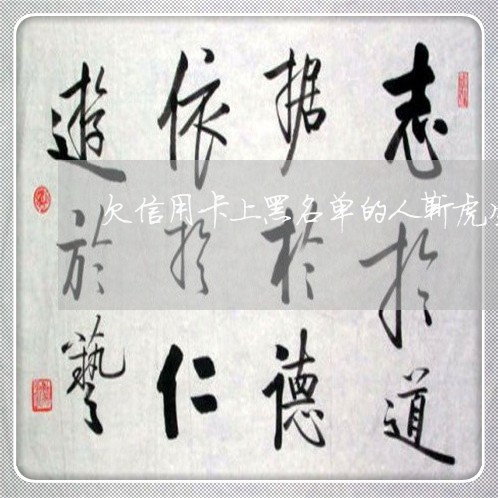 志於道
据於德
依於仁
遊於藝
欠信用卡上黑名单的人靳虎